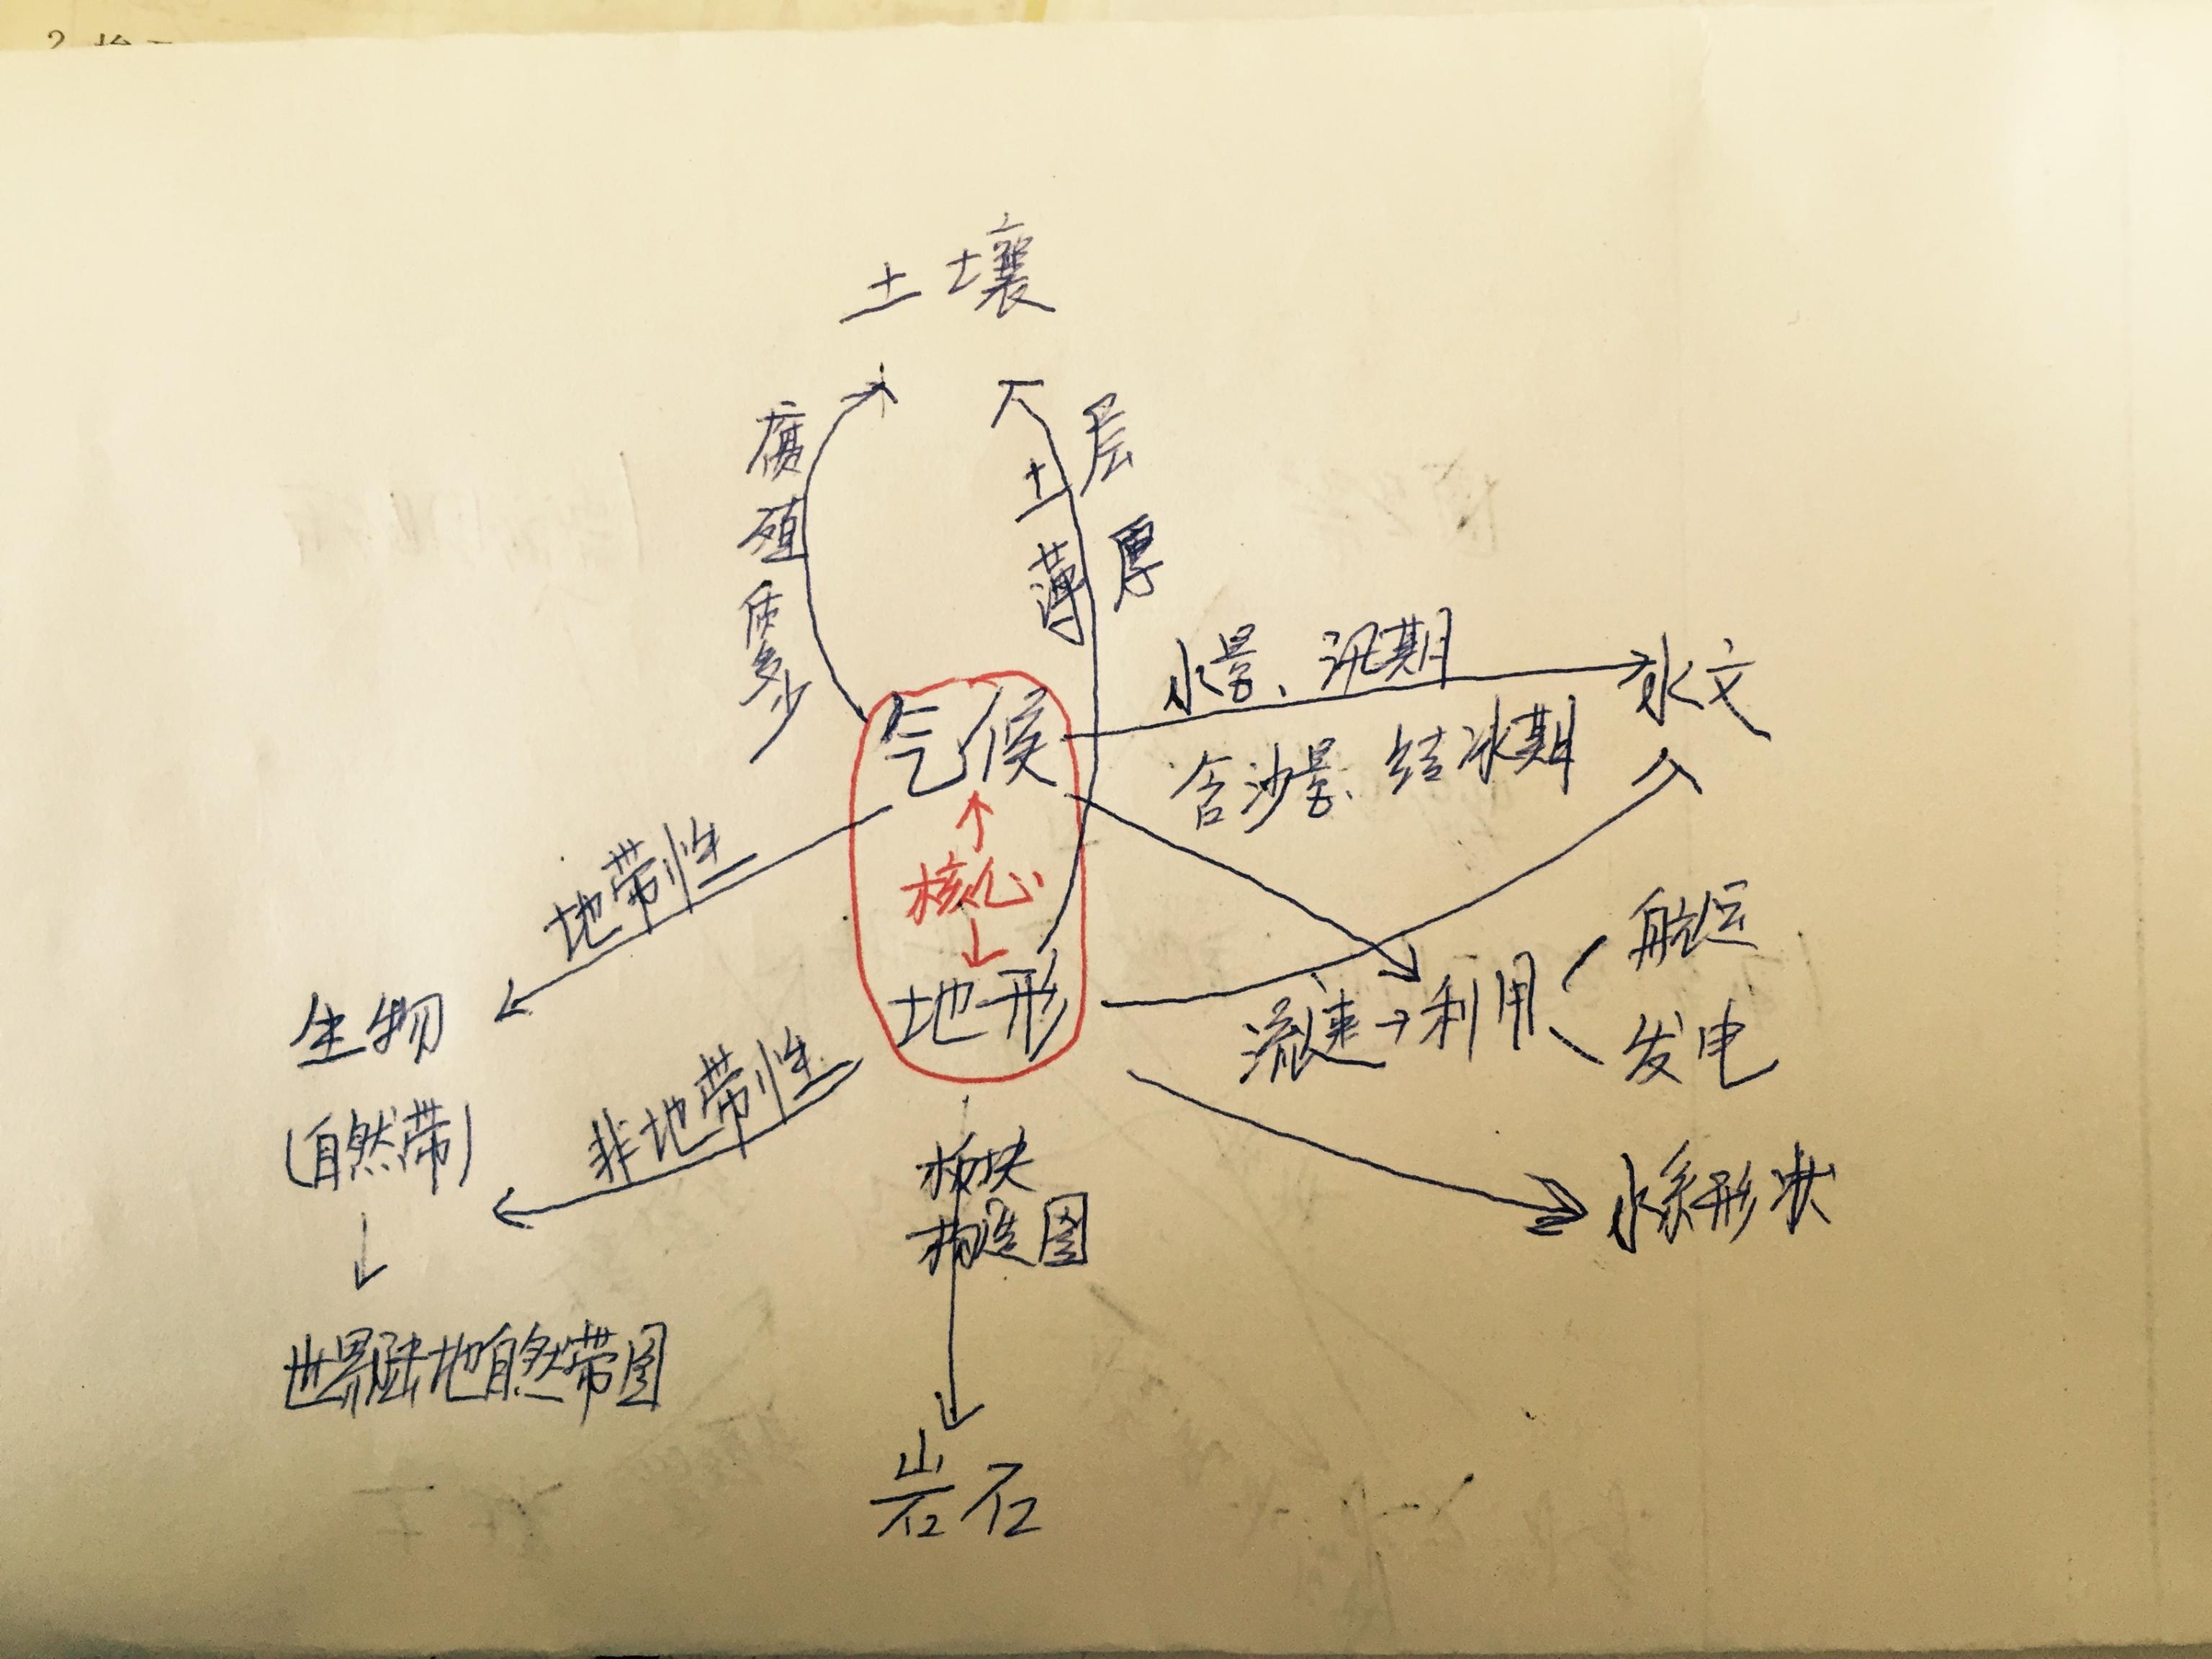 土壤
腐殖质多少
土层
薄厚
气候
核心
地形
水量、汛期
含沙量、结冰期
水文
流速→利用
航运
发电
水系形状
地带性
非地带性
生物
(自然带)
世界陆地自然带图
板块
构造图
岩石